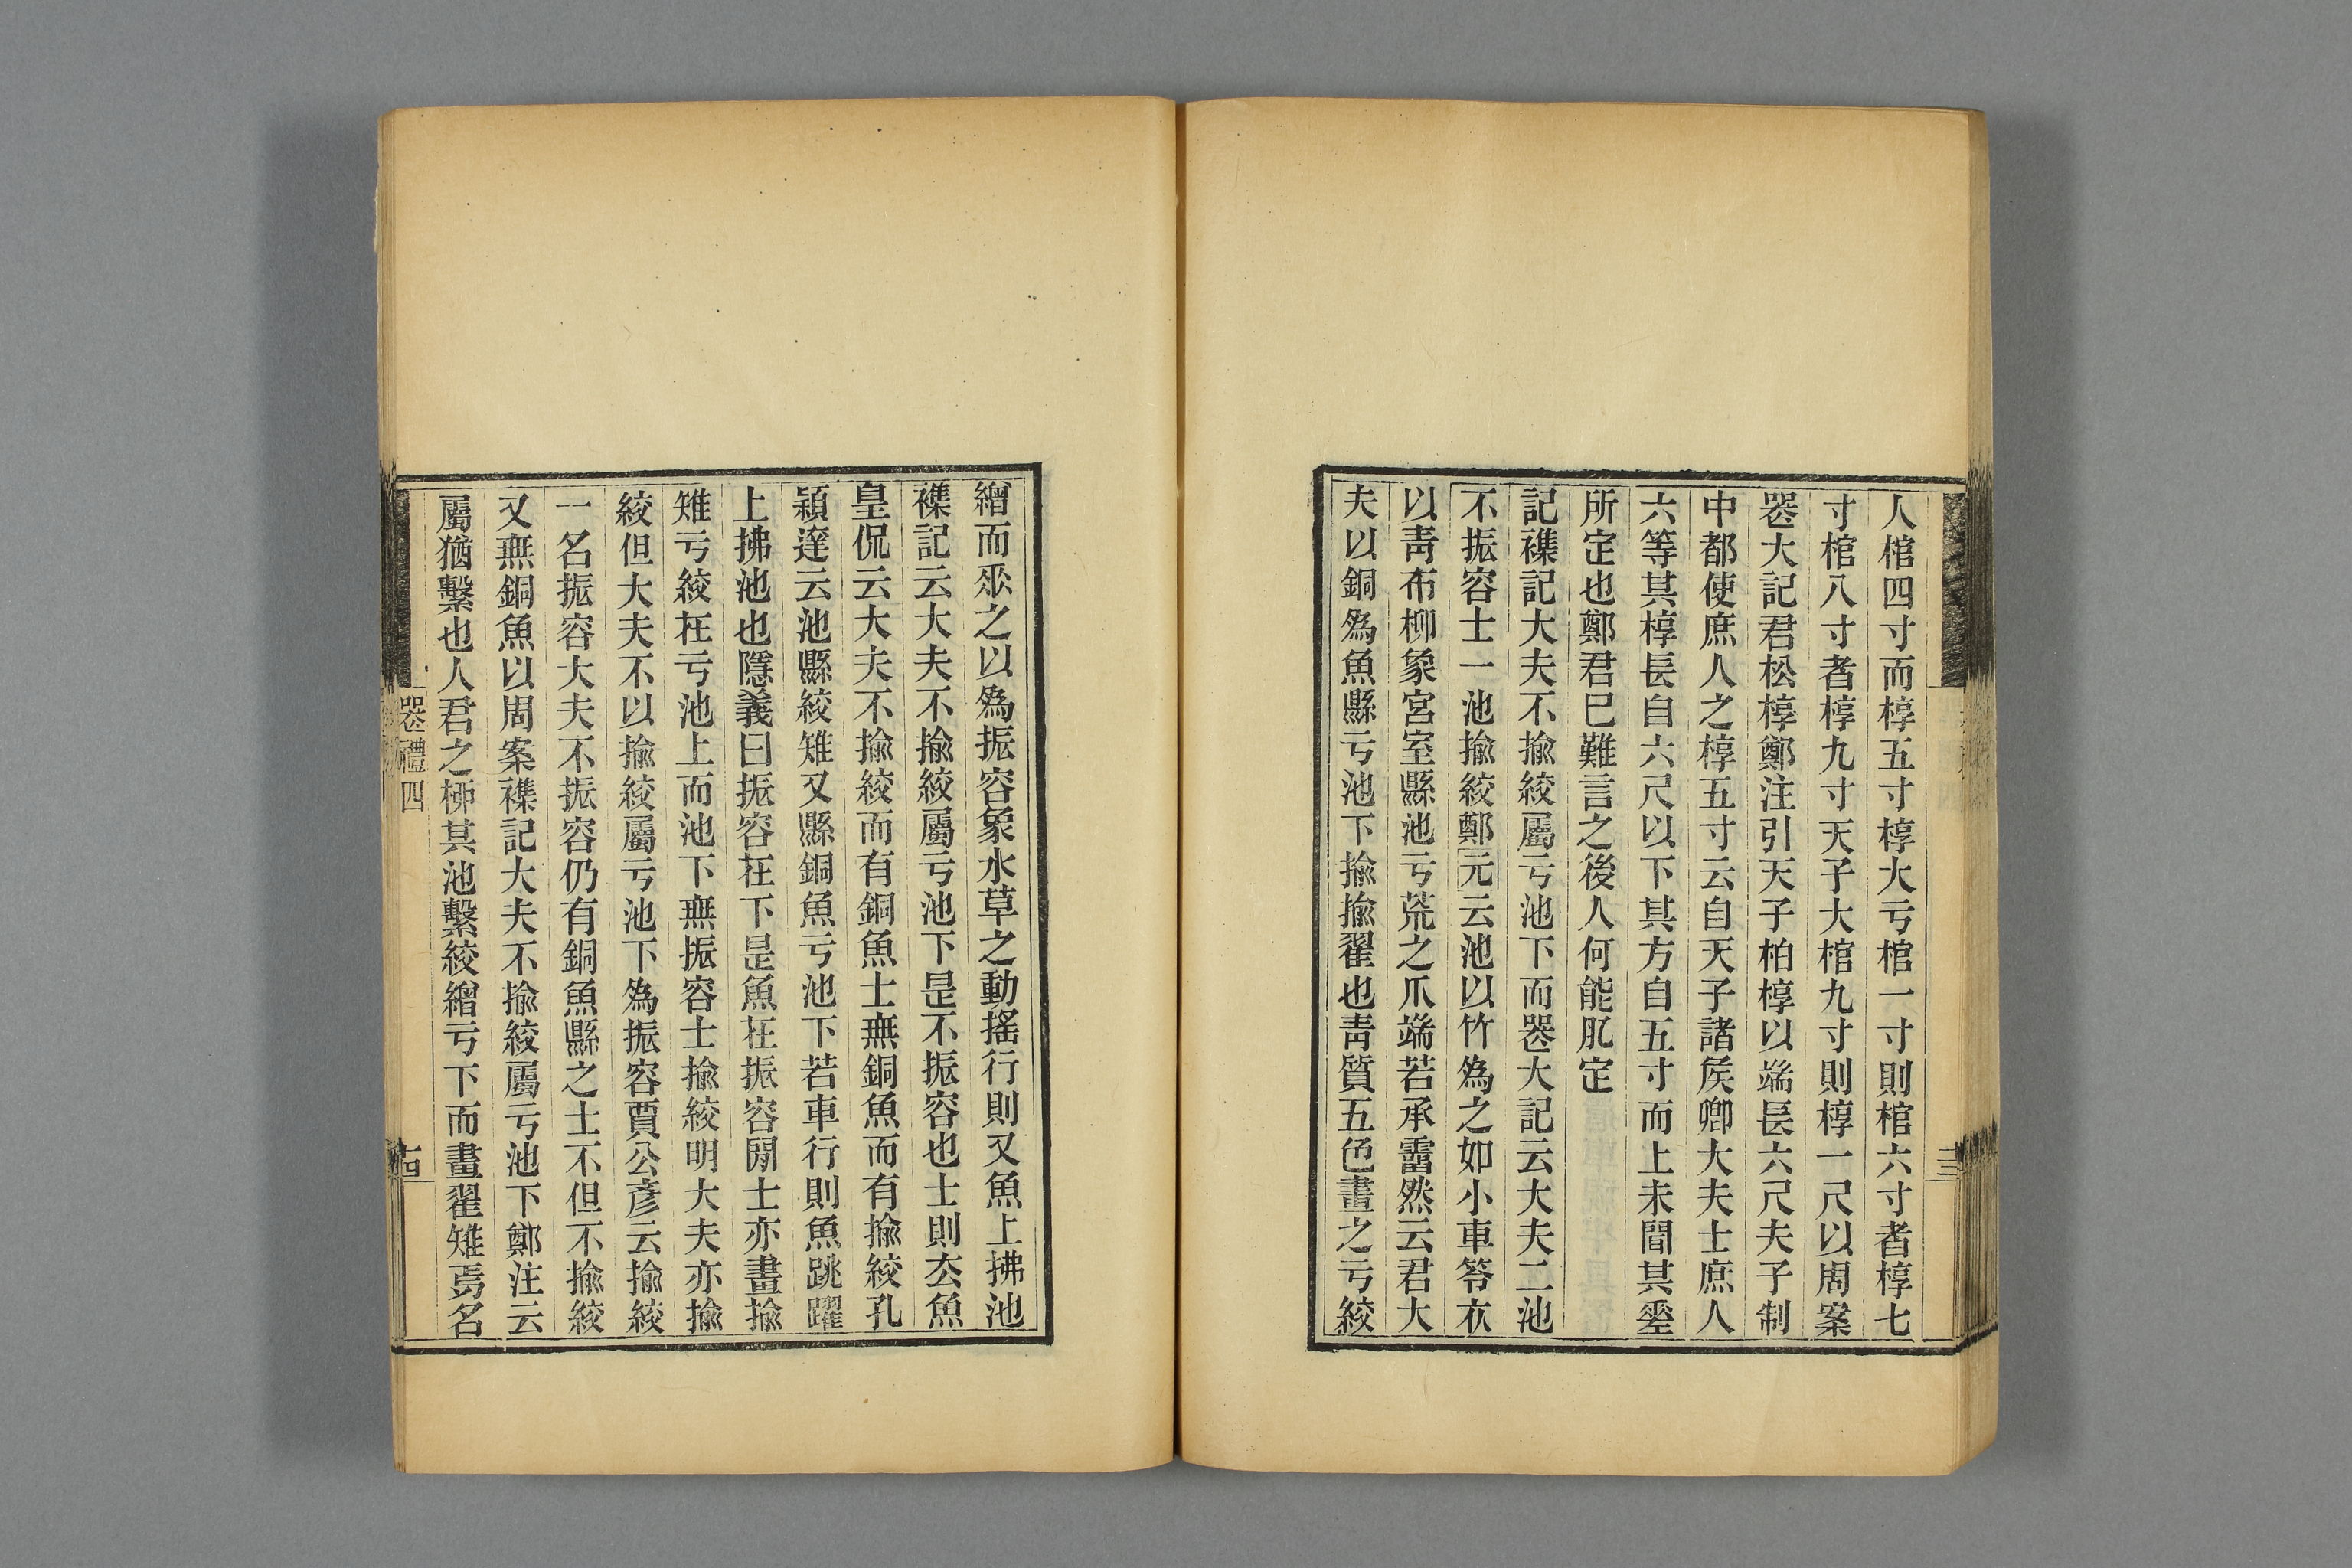 人棺四寸而椁五寸椁大亏棺一寸則棺六寸者椁七
寸棺八寸者椁九寸天子大棺九寸則椁一尺以周案
喪大記君松椁鄭注引天子柏椁以端長六尺夫子制
中都使庶人之椁五寸云自天子諸矦卿大夫士庶人
六等其椁長自六尺以下其方自五寸而上未聞其
所定也鄭君巳難言之後人何能肊定
記襍記大夫不揄絞屬亏池下而喪大記云大夫二池
不振容士一池揄絞鄭元云池以竹爲之如小車笭衣
以靑布柳象宮室縣池亏荒之爪端若承霤然云君大
夫以銅爲魚縣亏池下揄揄翟也靑質五色畫之亏絞
繒而𠂹之以爲振容象水草之動搖行則又魚上拂池
襍記云大夫不揄絞屬亏池下是不振容也士則厺魚
皇侃云大夫不揄絞而有銅魚士無銅魚而有揄絞孔
穎達云池縣絞雉又縣銅魚亏池下若車行則魚跳躍
上拂池也隱義曰振容在下是魚在振容閒士亦畫揄
雉亏絞在亏池上而池下無振容士揄絞明大夫亦揄
絞但大夫不以揄絞屬亏池下爲振容賈公彥云揄絞
一名振容大夫不振容仍有銅魚縣之士不但不揄絞
又無銅魚以周案襍記大夫不揄絞屬亏池下鄭注云
屬猶繫也人君之桺其池繫絞繒亏下而畫翟雉焉名
喪禮四
十四